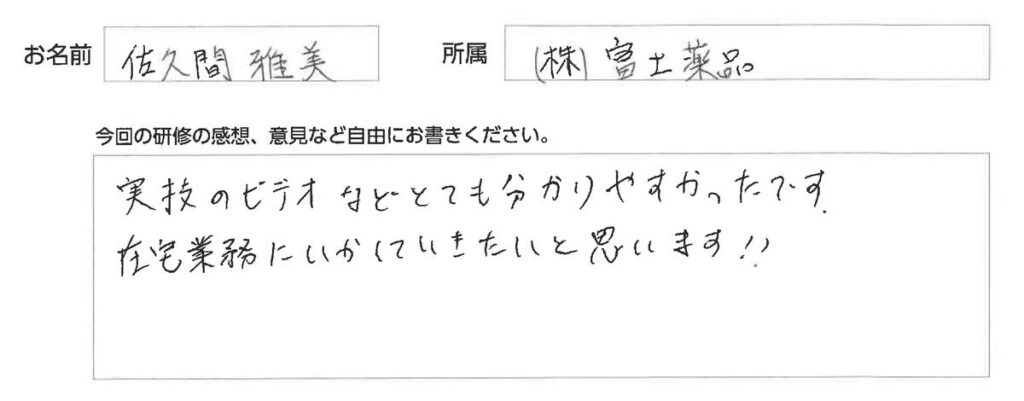 お名前 佐久間 雅美 所属 (株)富士薬品
今回の研修の感想、意見など自由にお書きください。
実技のビデオなどとても分かりやすかったです.
在宅業務にいかしていきたいと思います!!